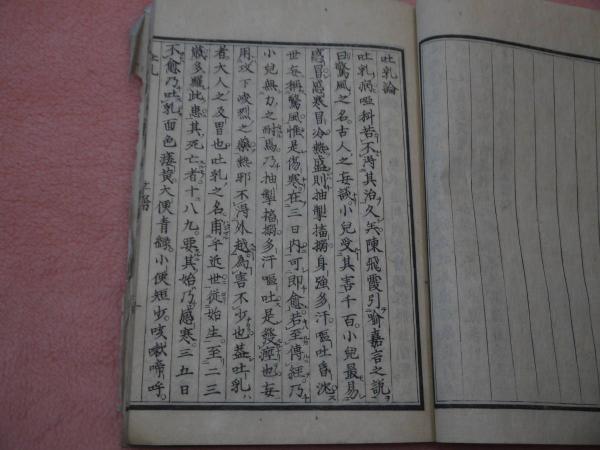 吐乳論
吐乳病啞科若不得其治久矣陳飛霞引喻嘉言之説ヲ
曰驚風之名古人之妄談小兒受其害千百小兒最易
感冒感寒冒冷熱盛則抽掣搐搦身強多汗嘔吐昏沈
世妄稱驚風惟是傷寒在三日内可即愈若至傳經乃
小兒無力之耐爲乃抽掣搐搦多汗嘔吐是發痙也妄
用攻下峻烈之藥熱邪不得外越爲害不少也蓋吐乳ハ
者大人之及胃也吐乳之名甫乎近世從始生至二三
歳多羅此患其死亡者十八九要其始乃感寒三五日
不愈乃吐乳面色痿黄大便青緑小便短少咳嗽啼呼